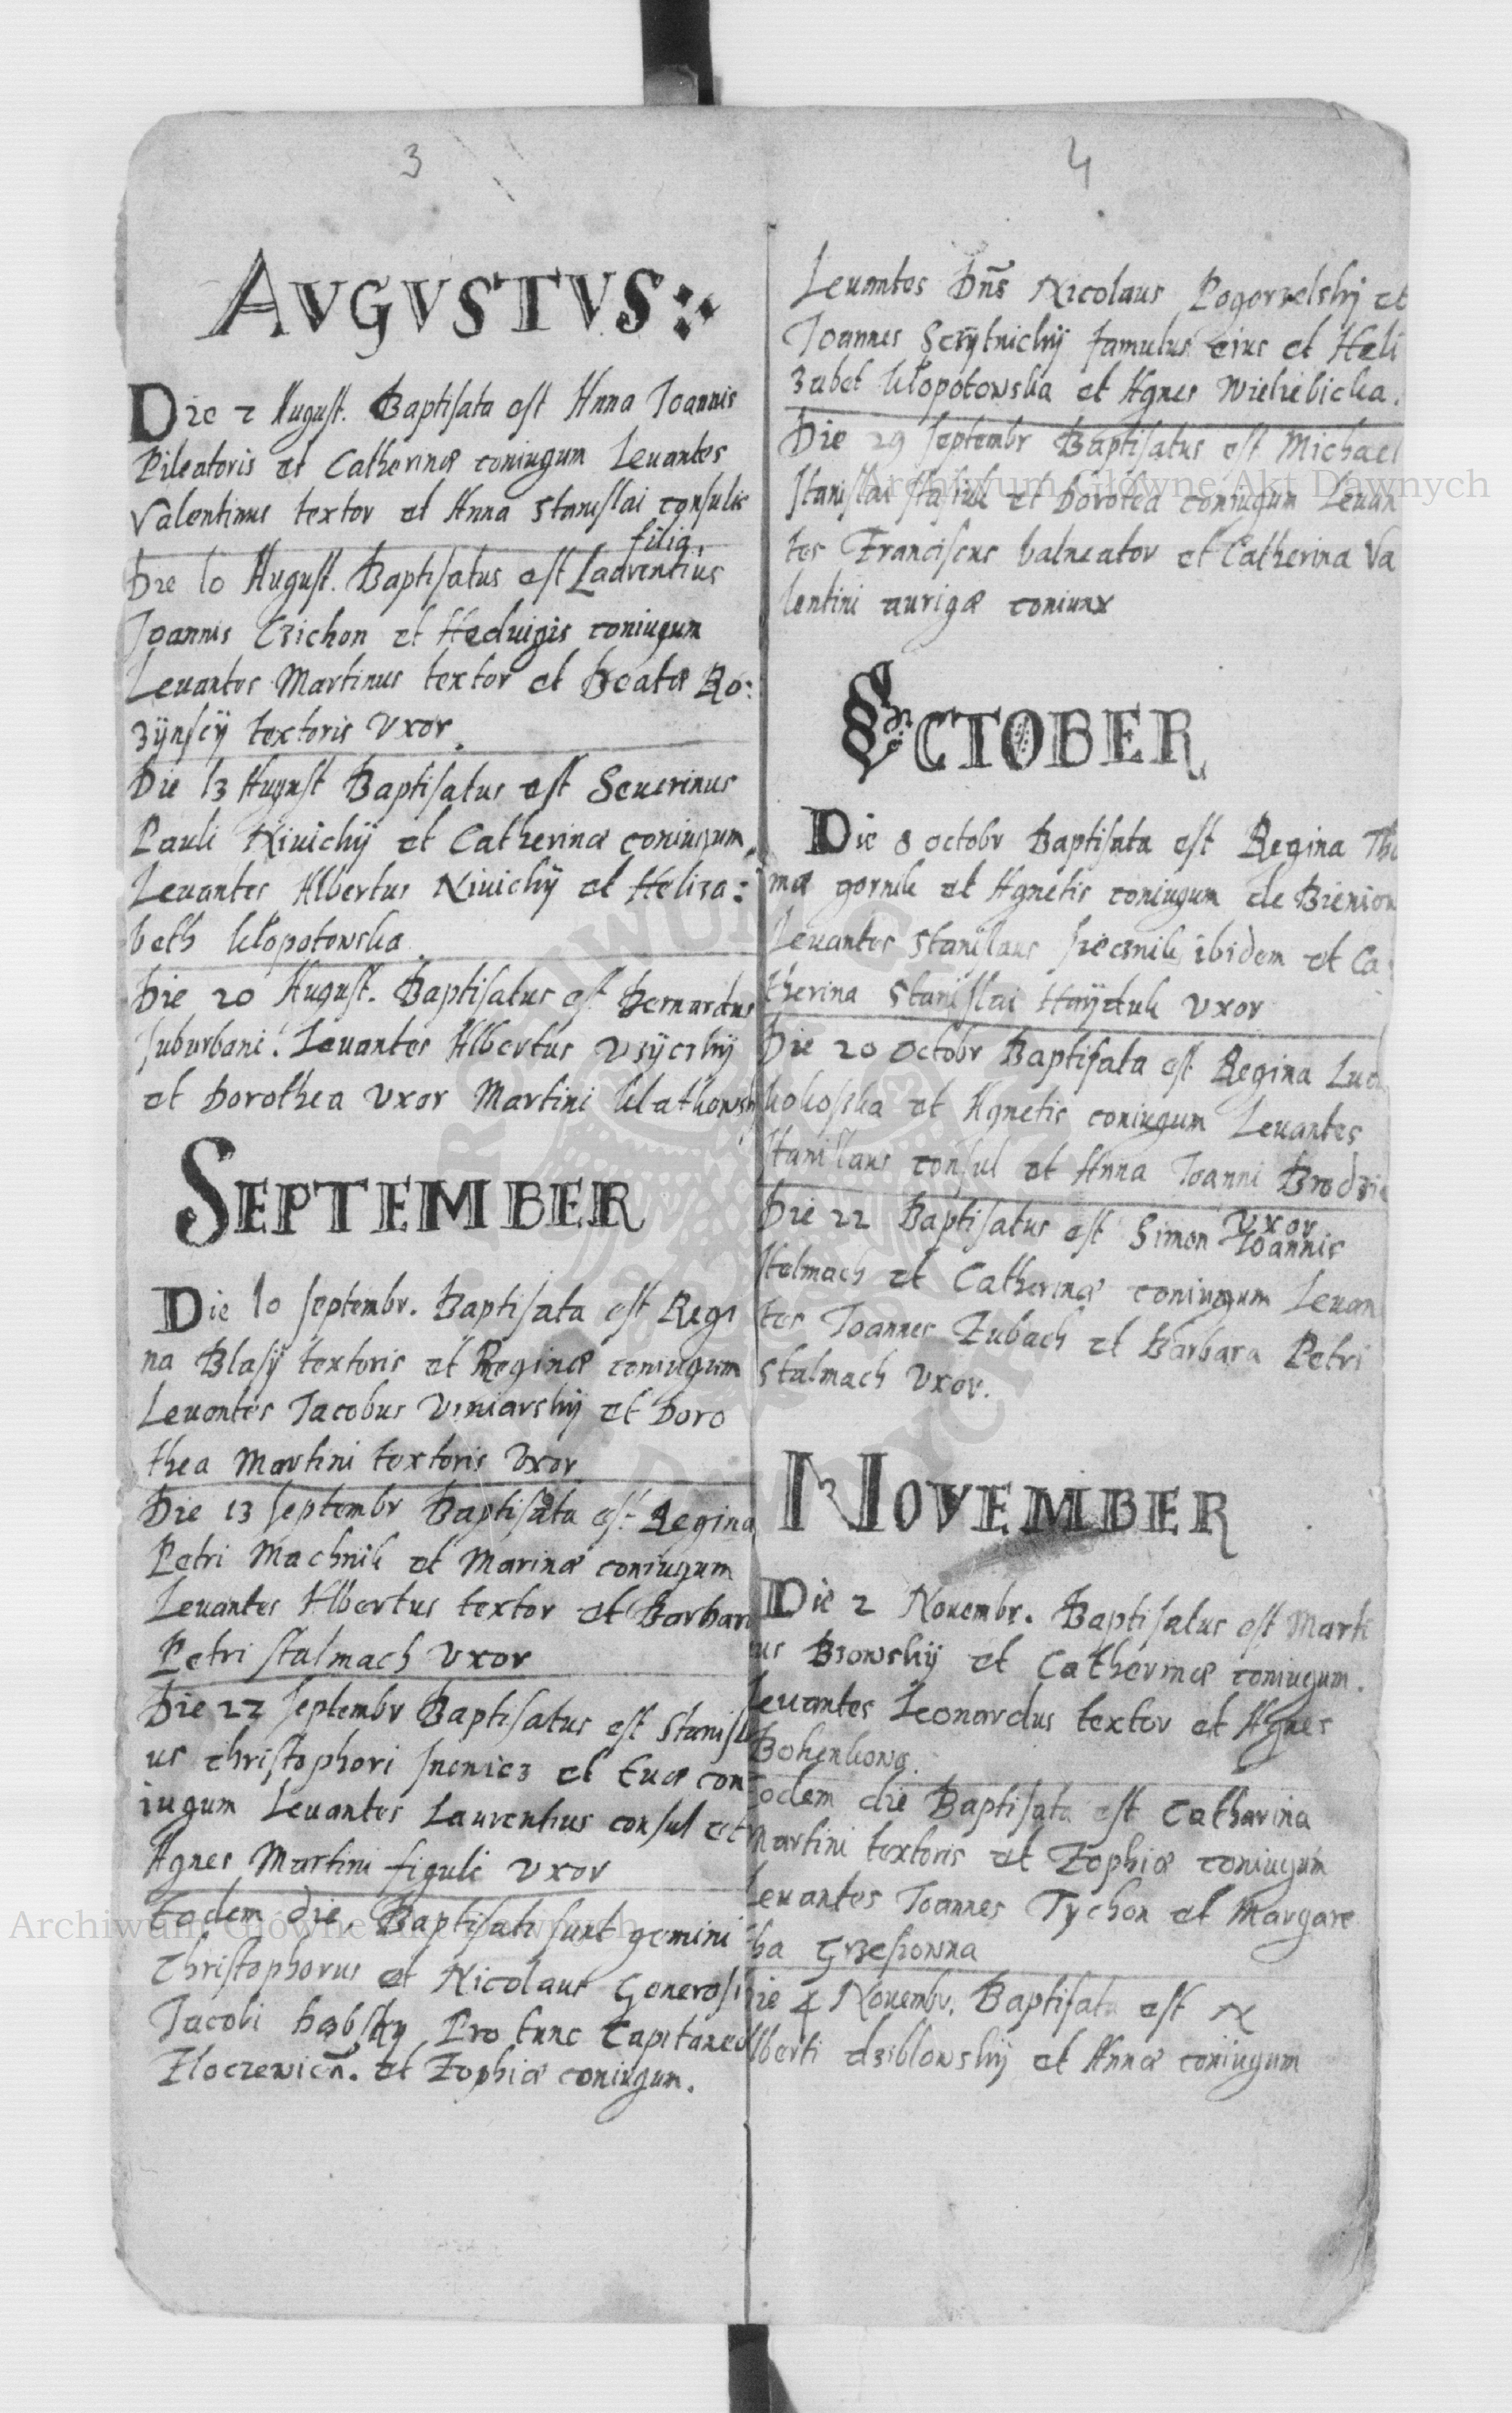 3
AVGVSTVS
Die 2 August. Baptisata est Anna Joannis
Pileatoris et Catherinæ coniugum Leuantes
Valentinus textor et Anna Stanislai consulis
filia.
Die 10 August. Baptisatus est Laurentius
Joannis Czichon et Heduigis coniugum
Leuantes Martinus textor et Beatæ Ro:
zÿnscÿ textoris Vxor.
Die 13 August Baptisatus est Seuerinus
Pauli Niuichÿ et Catherinæ coniugum
Leuantes Albertus Niuichÿ et Heliza:
beth Kłopotowska
Die 20 August. Baptisatus est Bernardus
suburbani. Leuantes Albertus
et Dorothea Vxor Martini
SEPTEMBER
Die 10 septembr. Baptisata est Regi
na Blasÿ textoris et Reginæ coniugum
Leuantes Jacobus Viniarskÿ et Doro
thea Martini textoris Vxor
Die 13 septembr Baptisata est Regina
Petri Machnik et Marinæ coniugum
Leuantes Albertus textor et Barbara
Petri stalmach Vxor
Die 22 septembr Baptisatus est Stanisla
us christophori et Euæ con
iugum Leuantes Laurentius consul et
Agnes Martini figuli vxor
Eodem die. Baptisati sunt gemini
Christophorus et Nicolaus Generosi
Jacobi Pro tunc Capitanei
Złoczewicñ. et Zophiæ coniugum.
4
Leuantes Dñs Nicolaus Pogorzelskÿ et
Joannes famulus eius et Heli
zabet Kłopotowska et Agnes Wieliebicka.
Die 29 septembr Baptisatus est Michael
Stanislai Stasiuk et Dorotea coniugum Leuan
tes Franciscus balneator et Catherina Va
lentini aurigæ coniunx
OCTOBER
Die 8 octobr Baptisata est Regina Tho
mæ gornik et Agnetis coniugum de Bieniow
Leuantes Stanislaus ibidem et Ca
therina Stanislai Haÿduk Vxor
Die 20 Octobr Baptisata est Regina
Kokoska et Agnetis coniugum Leuantes
Stanislaus consul et Anna Joanni
Vxor
Die 22 Baptisatus est Simon Joannis
stelmach et Catherinæ coniugum Leuan
tes Joannes Zubach et Barbara Petri
Stalmach Vxor.
NOVEMBER
Die 2 Nouembr. Baptisatus est Marti
us Bzowskÿ et Catherinæ coniugum.
Leuantes Leonardus textor et Agnes
Eodem die Baptisata est Catharina
Martini textoris et Zophiæ coniugum
Leuantes Joannes Tychon et Margare
tha Grzesiowna
Die 4 Nouembr. Baptisata est N
Alberti dziblowskÿ et Annæ coniugum
Archiwum Główne Akt Dawnych
Archiwum Główne Akt Dawnych